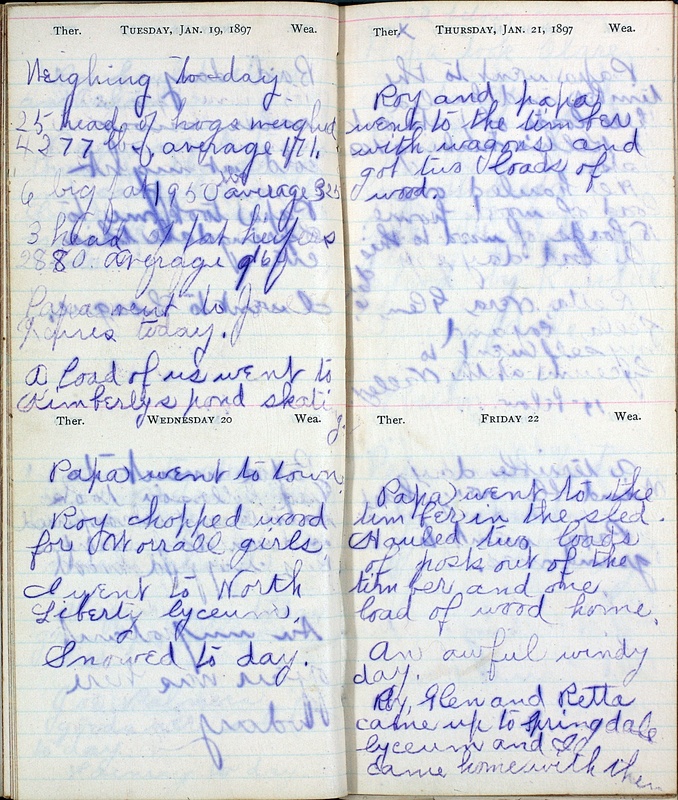 Ther. TUESDAY, JAN. 19, 1897 Wea.
Weighing to-day
25 head of hogs weighed
4277 lbs, average 171.
6 big fat 1950 lbs average 325
3 head of fat heifers
2880. Average 960
Papa went to
today.
A load of us went to
Kimberlys pond skati
g.
Ther. WEDNESDAY 20 Wea.
Papa went to town.
Roy chopped wood
for Worrall girls
I went to North
Liberty lyceum.
Snowed to day.
Ther. x THURSDAY, JAN. 21, 1897 Wea.
Roy and papa
went to the timber
with wagons and
got two loads of
wood.
Ther. FRIDAY 22 Wea.
Papa went to the
timber in the sled.
Hauled two loads
of posts out of the
timber and one
load of wood home.
An awful windy
day.
Roy, Glen and Retta
came up to Springdale
lyceum and I
came home with them